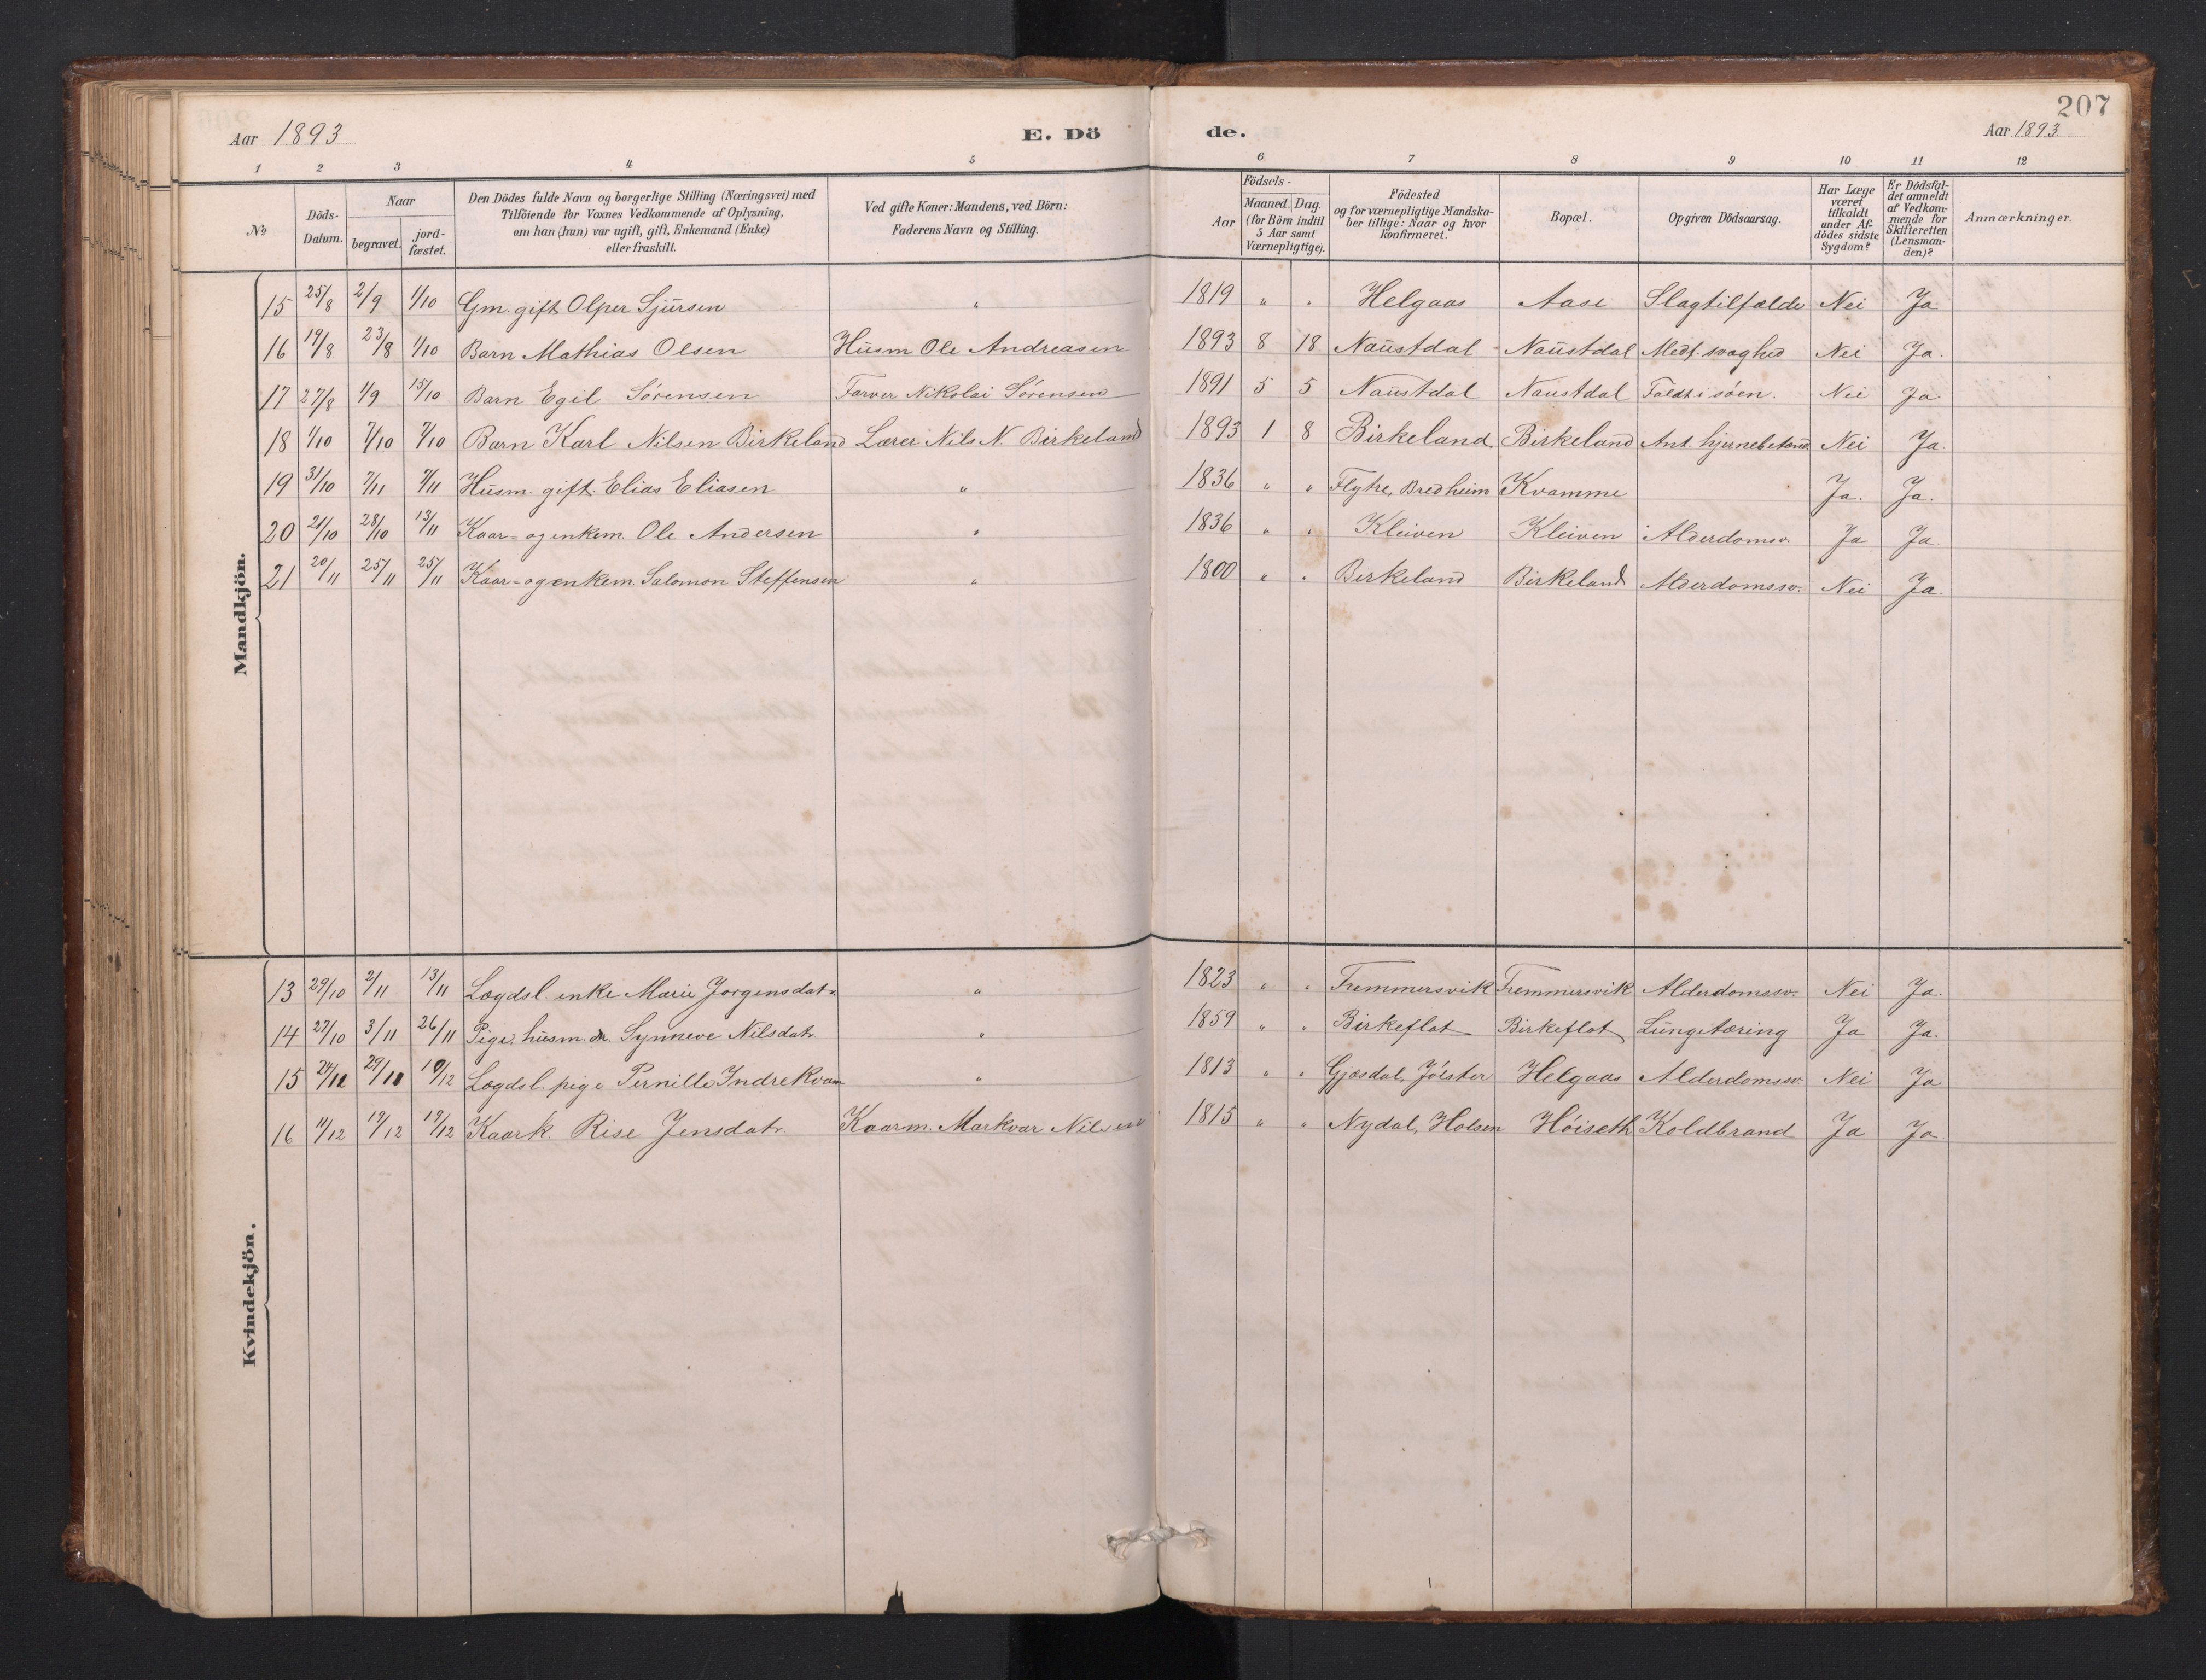 207
Aar 1893 E. Dö de. Aar 1893
1 2 3 4 5 6 7 8 9 10 11 12
№ Döds-Datum. Naar begravet. jord-fæstet. Den Dödes fulde Navn og borgerlige Stilling (Næringsvei) med Tilföiende for Voxnes Vedkommende af Oplysning, om han (hun) var ugift, gift, Enkemand (Enke) eller fraskilt. Ved gifte Koner: Mandens, ved Börn: Faderens Navn og Stilling. Födsels- Aar Maaned. Dag. (for Börn indtil 5 Aar samt Værnepligtige). Födested og for værnepligtige Mandskaber tillige: Naar og hvor konfirmeret. Bopæl. Opgiven Dödsaarsag. Har Læge været tilkaldt under Afdödes sidste Sygdom? Er Dödsfaldet anmeldt af Vedkommende for Skifteretten (Lensmanden)? Anmærkninger.
Mandkjön.
15 25/8 2/9 1/10 Gm. gift Olper Sjursen " 1819 " " Helgaas Aase Slagtilfælde Nei Ja
16 19/8 23/8 1/10 Barn Mathias Olsen Husm Ole Andreasen 1893 8 18 Naustdal Naustdal Medf. svaghed Nei Ja.
17 27/8 1/9 15/10 Barn Egil Sørensen Farver Nikolai Sørensen 1891 5 5 Naustdal Naustdal Faldt i søen. Nei Ja
18 1/10 7/10 7/10 Barn Karl Nilsen Birkeland Lærer Nils N. Birkeland 1893 1 8 Birkeland Birkeland Ant. hjernebetænd. Nei Ja.
19 31/10 7/11 7/11 Husm. gift. Elias Eliasen " 1836 " " Flytre, Bredheim Kvamme Ja. Ja.
20 21/10 28/10 13/11 Kaar= og enkem. Ole Andersen " 1836 " " Kleiven Kleiven Alderdomsv. Ja Ja.
21 20/11 25/11 25/11 Kaar= og enkem. Salomon Steffensen " 1800 " " Birkeland Birkeland Alderdomssv. Nei Ja.
Kvindekjön.
13 29/10 2/11 13/11 Lægdsl. enke Marie Jorgensdatr. " 1823 " " Fremmersvik Fremmersvik Alderdomssv. Nei Ja.
14 27/10 3/11 26/11 Pige, husm. dr. Synneve Nilsdatr. " 1859 " " Birkeflot Birkeflot Lungetæring Ja Ja.
15 24/11 29/11 10/12 Lægdsl. pige Pernille Indrekvam " 1813 " " Gjesdal, Jölster Helgaas Alderdomssv. Nei Ja
16 11/12 19/12 19/12 Kaark. Rise Jensdatr. Kaarm. Markvar Nilsen 1815 " " Nydal, Holsen Höiseth Koldbrand Ja Ja.